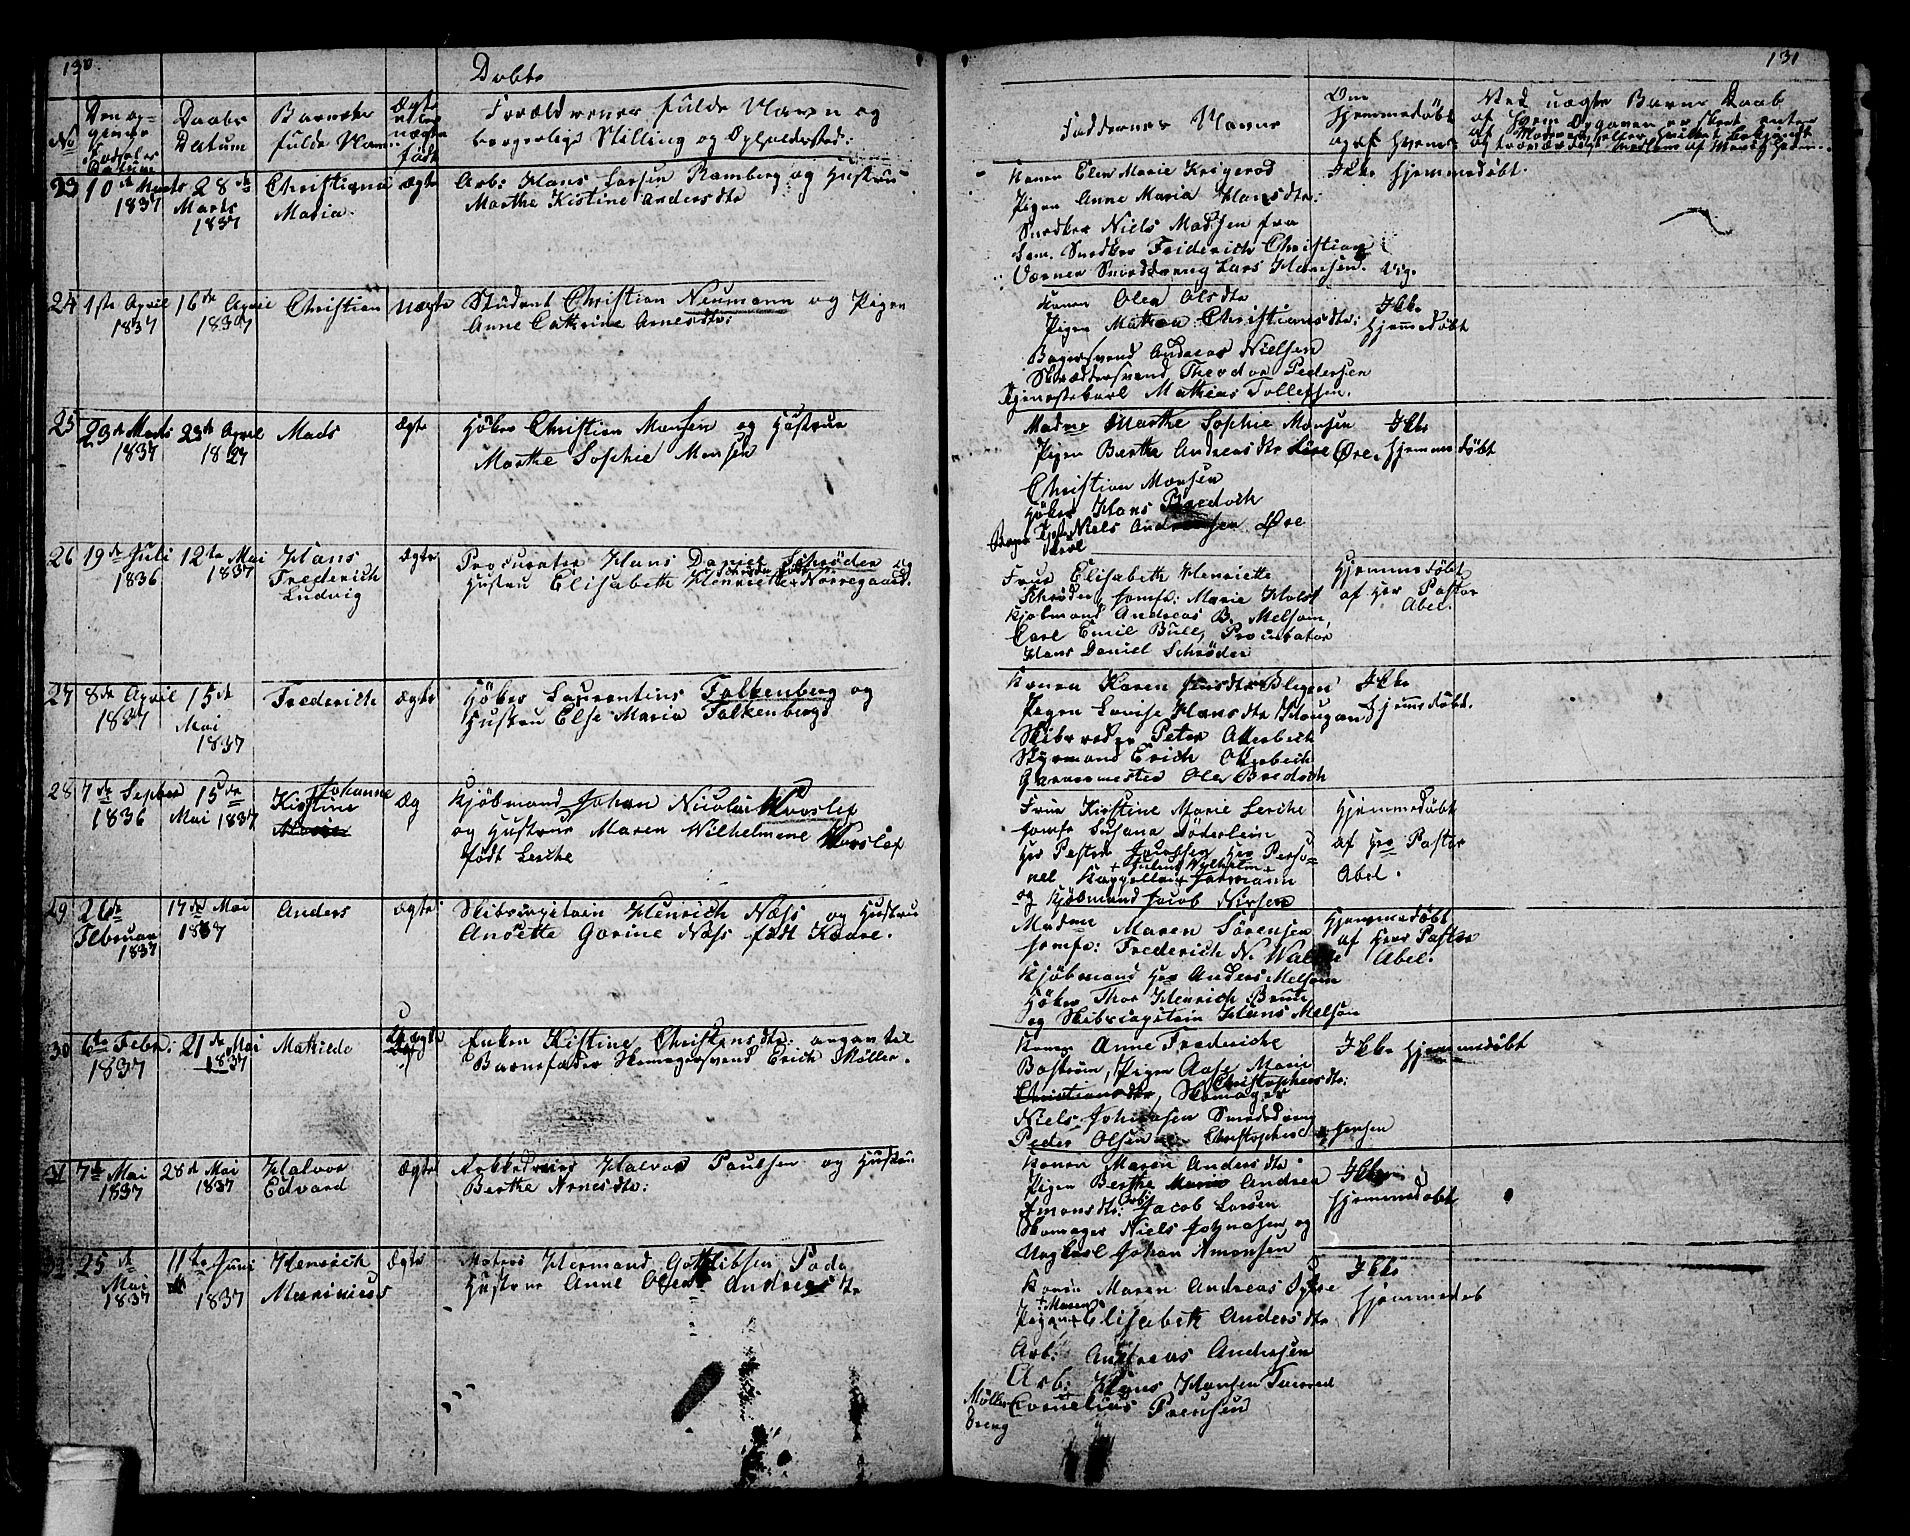 130
Døbte
No
Den op-
givne
Fødsels
Datum
Daabs
Datum
Barnets
fulde Navn
Ægte
eller
uægte
født
Forældrenes fulde Navn og
borgerlige Stilling og Opholdssted:
23
10de Marts
1837
28de
Marts
1837
Christiana
Maria
ægte
Arb: Hans Larsen Ramberg og Hustru
Marthe Kistine Andersdtr
24
1ste April
1837
16de April
1837
Christian
Uægte
Student Christian Neumann og Pigen
Anne Cathrine Arnesdtr:
25
23de Marts
1837
23de April
1837
Mads
Ægte
Høker Christian Monsen og Hustrue
Marthe Sophie Monsen
26
19de Juli
1836
12te Mai
1837
Hans
Frederich
Ludvig
Ægte
Procurator Hans Daniel Schrøder og
Hustru Elisabeth Henriette Nørregaard.
27
8de April
1837
15de
Mai
1837
Frederich
Ægte
Høker Laurentius Falkenberg og
Hustru Else Maria Falkenberg
28
7de Septber
1836
15de
Mai 1837
Johanne
Kistine
Marie
Æg
Kjøbmand Johan Nicolai Worslef
og Hustrue Maren Wilhelmine Worslef
født Lerche
29
26de
Februar
1837
17de Mai
1837
Anders
Ægte
Skibscapitein Henrich Næss og Hustru
Anette Gorine Næss født Kaare.
30
6te Febr:
1837
21de Mai
1837
Mathilde
Uægte
Enken Kistine Christensdtr: angav til
Barnefader Skomagersvend Erich Møller.
31
7de Mai
1837
28de Mai
1837
Halvor
Edvard
Ægte
Halvor Paulsen og Hustru
Berthe Arnesdtr:
32
25de
Mai
1837
11te Juni
1837
Henrich
Marinius
Ægte
Matros Hermand Gottlibsen Pade
Hustrue Anne Olea Andreasdtr
131
Faddernes Navne
Om
Hjemmedøbt
og af hvem
Ved uægte Børns Daab
Konen Elen Marie Krigerød
Pigen Anne Maria Hansdtr:
Snedker Niels Madsen fra
Sem. Snedker Friderich Christian
Værner Smeddreng Lars Hansen. Vig.
Ikke hjemmedøbt.
Konen Olea Olsdtr
Pigen Mathea Christiansdtr:
Bagersvend Andreas Nielsen
Skræddersvend Theodor Pedersen
Tjenestekarl Mathias Tollefsen.
Ikke
hjemmedøbt
Madme Marthe Sophie Monsen
Pigen Berthe Andreasdtr Øre
Christian Monsen
Høker Hans Bredoch
Niels Andreassen Øre
Ikke
hjemmedøbt
Frue Elisabeth Henriette
Schrøder Jomfr: Marie Holst
Kjøbmand Andreas B. Melsom,
Carl Emil Bull, Procurator
Hans Daniel Schrøder
Hjemmedøbt
af Her Pastor
Abel.
Konen Karen Jensdtr Blegen
Pigen Lovise Hansdtr Hougan
Skibsreder Peter Otterbech
Styrmand Erich Otterbech
Garvermester Ole Bredoch
Ikke
hjemmedøbt.
Frue Kirstine Marie Lerche
Jomfr Susana Søderlein
Her Pastor Jourssen Her Perso-
nel Kappellan Julius Wilhelm Jarmann
og Kjøbmand Jacob Nirsen
Hjemmedøbt
af Her Pastor
Abel.
Madme Maren Sørensen
Jomfr: Frederich N. Walle
Kjøbmand Her Anders Melsom
Høker Thor Henrich Bruun
og Skibscapitein Hans Melsom
Hjemmedøbt
af Herr Pastor
Abel.
Konen Anne Frederiche
Bostrøm, Pigen Aase Marie
Christophersdtr:
Christiansdtr, Skomager
Niels Johnasen Smeddreng
Peder Olsen Christopher Jensen
Ikke hjemmedøbt
Konen Maren Andersdtr
Pigen Berthe Marie Andrea
Amonsdtr: Arb: Jacob Larsen
Skomager Niels Johnasen og
Ungkarl Johan Amonsen
Ikke
hjemmedøbt
Konen Maren Andreas Sykre
Pigen Maren Elisabeth Andersdtr
Arb: Andreas Andersen
Arb: Hans Hansen
Møller
dreng
Cornelius Paulsen
Ikke
hjemmedøb